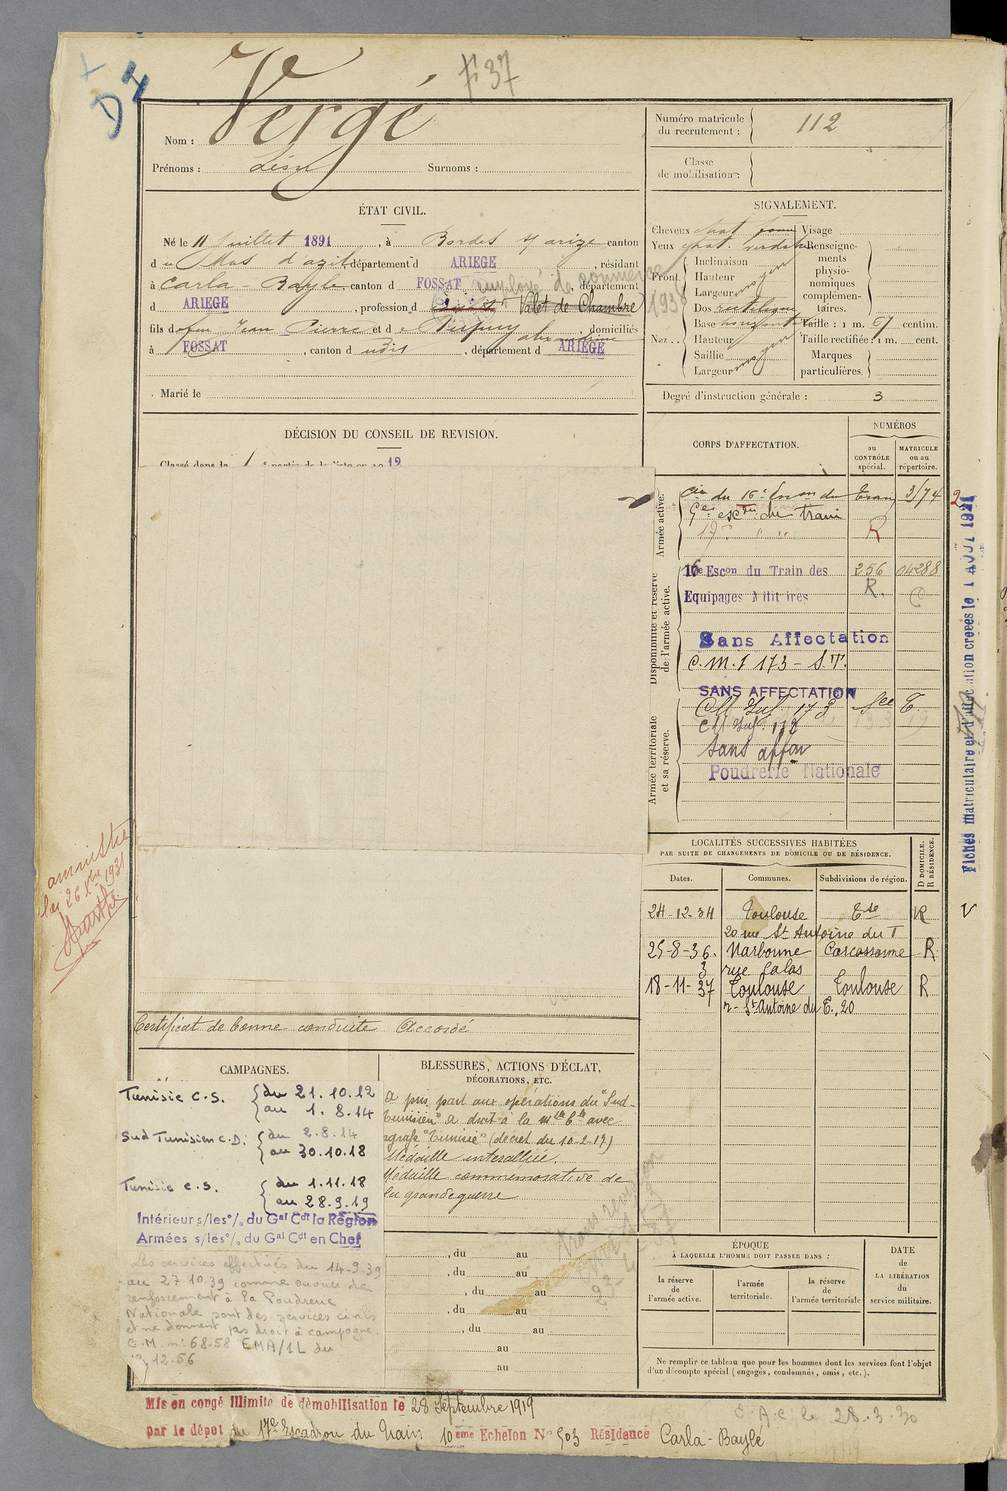 F 37
D 4
Vergé
Nom :
Prénoms : Léon Surnoms :
Numéro matricule
du recrutement : 112
Classe
de mobilisation :
ÉTAT CIVIL.
Né le 11 Juillet 1891, à Bordes s/ arize canton
du Mas d'azil, département d ARIEGE, résidant
à Carla-Bayle, canton d FOSSAT, employé de commerce département
d ARIEGE, profession d Valet de Chambre 1938
fils de feu Jean Pierre et de domiciliés
à FOSSAT, canton d udit, département d ARIEGE
Marié le
SIGNALEMENT.
Cheveux chat Visage
Yeux chat. verdatre Renseigne-
ments
physio-
nomiques
complémen-
taires.
Front. Inclinaison
Hauteur
Largeur
Nez . . Dos rectiligne
Base Taille : 1 m. 67 centim.
Hauteur Taille rectifiée : 1 m. cent.
Saillie Marques
Largeur particulières.
Degré d'instruction générale : 3
DÉCISION DU CONSEIL DE REVISION.
CORPS D'AFFECTATION.
NUMÉROS
au
CONTRÔLE
spécial.
MATRICULE
ou au
répertoire.
Armée active.
Cie du 16e du Train 3/74 2
du train
17e " " R
Disponibilité et réserve
de l'armée active.
16e Escon du Train des 256 04288
Equipages Militaires R. C
Sans Affectation
C.M.I 173 - S.T.
SANS AFFECTATION
Armée territoriale
et sa réserve.
CM Inf. 173
CM Inf. 172
Sans affon
Poudrerie Nationale
Fiches matriculaire et d'affectation créées le 1 AOUT 1921
LOCALITÉS SUCCESSIVES HABITÉES
PAR SUITE DE CHANGEMENTS DE DOMICILE OU DE RÉSIDENCE.
Dates. Communes. Subdivisions de région. D DOMICILE. R RÉSIDENCE.
24-12-34 Toulouse Tse R
20 rue St Antoine du T
25-8-36. Narbonne Carcassonne R
3 rue Calas
18-11-37 Toulouse Toulouse R
r. St Antoine du T., 20
amnistie
loi 26 Xbre 1931
Certificat de bonne conduite Accordé
CAMPAGNES.
Tunisie C.S. du 21.10.12
au 1.8.14
Sud Tunisien C.D. du 2.8.14
au 30.10.18
Tunisie C.S. du 1.11.18
au 28.9.19
Intérieur s/les °/. du Gal Cdt la Région
Armées s/les °/. du Gal Cdt en Chef
Les services effectués du 14.9.39
au 27.10.39 comme ouvrier de
renforcement à la Poudrerie
Nationale sont des services civils
et ne donnent pas droit à campagne.
C.M. n° 68-58 EMA/1L du
12.56
BLESSURES, ACTIONS D'ÉCLAT,
DÉCORATIONS, ETC.
A pris part aux opérations du "Sud-
Tunisien" a droit à la mlle Cle avec
agrafe "Tunisie" (décret du 10-2-17)
Médaille interalliée.
Médaille commémorative de
la grande guerre
, du au
, du au
, du au
, du au
, du au
au
au
ÉPOQUE
À LAQUELLE L'HOMME DOIT PASSER DANS :
la réserve
de
l'armée active.
l'armée
territoriale.
la réserve
de
l'armée territoriale
DATE
de
LA LIBÉRATION
du
service militaire.
Ne remplir ce tableau que pour les hommes dont les services font l'objet
d'un décompte spécial (engagés, condamnés, omis, etc.).
Mis en congé illimité de démobilisation le 28 Septembre 1919
par le dépôt du 17e Escadron du Train 10ème Echelon N° 503 Résidence Carla-Bayle
C.A.C le 28.3.30